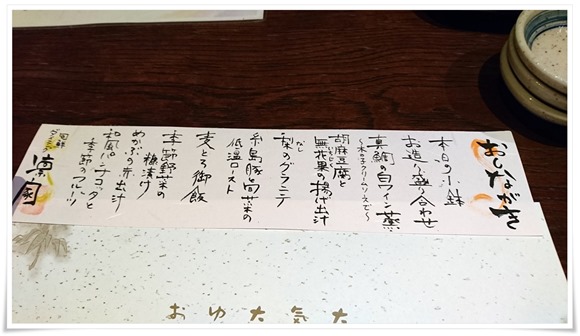 おしながき
本日の小鉢
お造り盛り合わせ
真鯛の白ワイン蒸
胡麻豆腐と
無花果の揚げ出汁
梨のグラニテ
なし
糸島豚と旬菜の
低温ロースト
麦とろ御飯
季節野菜の
糠漬け
めかぶの赤出汁
和風パンナコッタと
季節のフルーツ
おゆ大気大